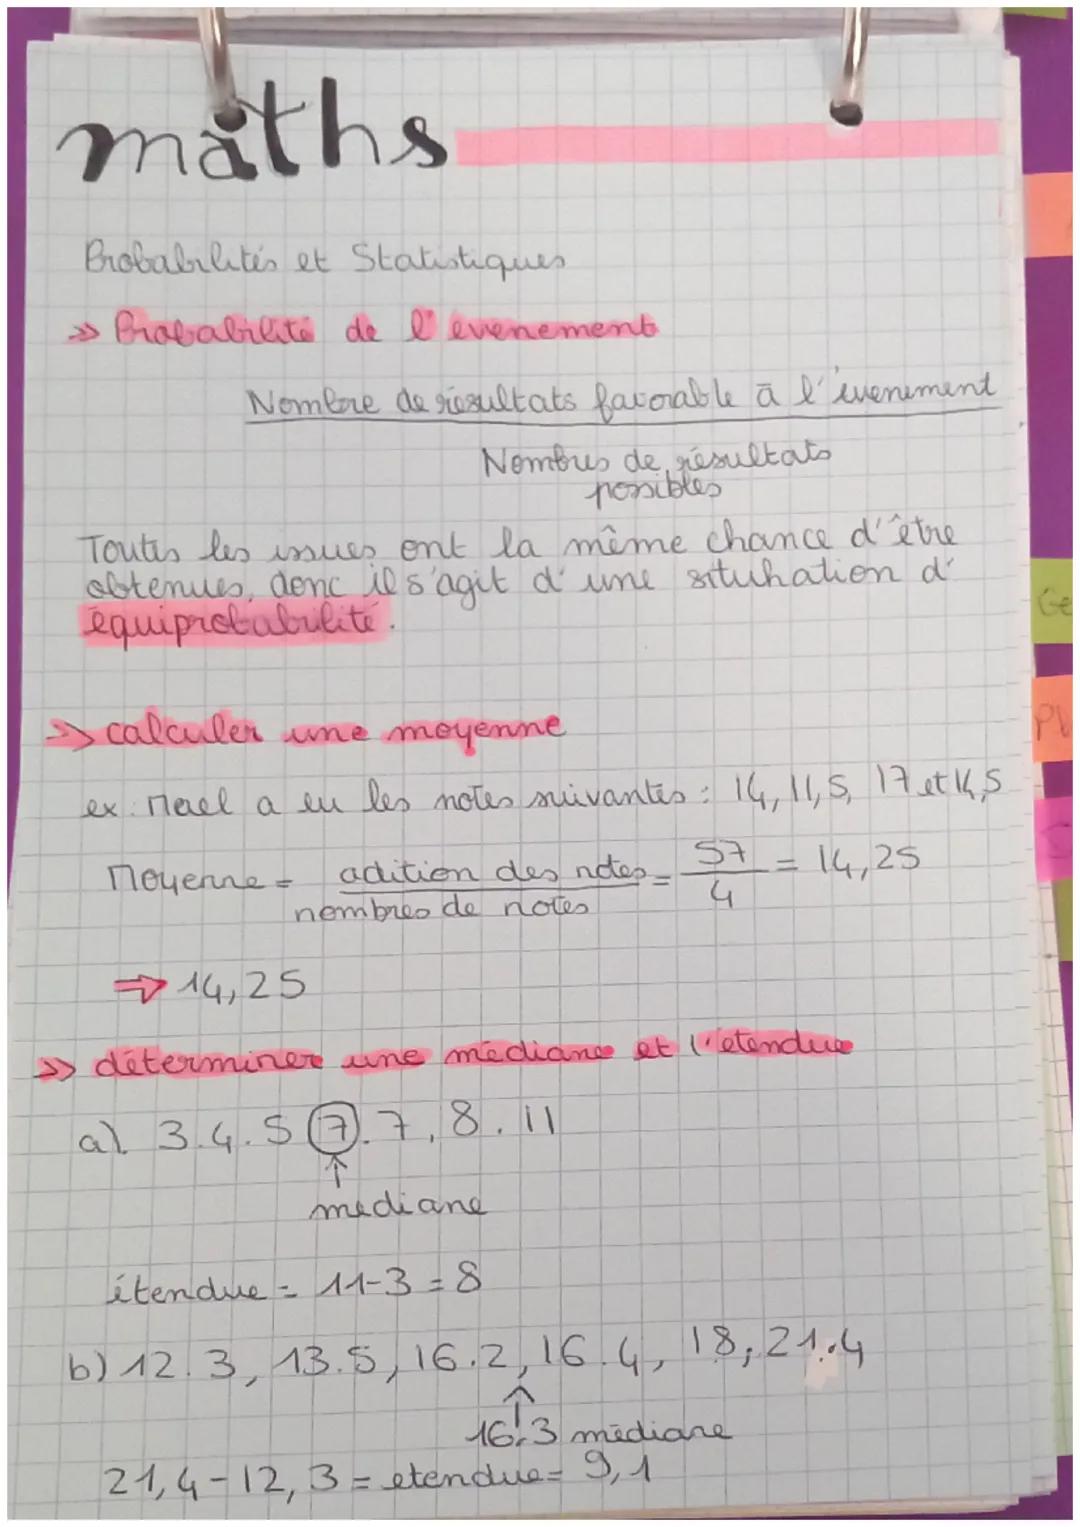 maths
Probabilités et Statistiques
>> Probabilité de l'évenement
Nombre de résultats favorable à l'évenement
Nombres de résultats
possibles
Toutes les issues ont la même chance d'être
obtenues, donc il s'agit d'une situhation d'
équiprobabilité.
>> calculer une moyenne
ex: Mael a eu les notes suivantes : 14, 11,5, 17 et 14,5
Moyenne = adition des notes = 57 = 14,25
nombres de notes 4
⇒ 14,25
>> déterminer une médiane et l'étendue
a) 3.4.5 7.7, 8.11
↑
mediane
étendue = 11-3 = 8
b) 12.3, 13.5, 16.2, 16.4, 18, 21.4
↑
16.3 médiane
21,4-12,3 = etendue = 9,1
Ge